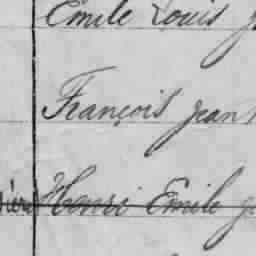 Emile Louis
François jean
Henri Emile